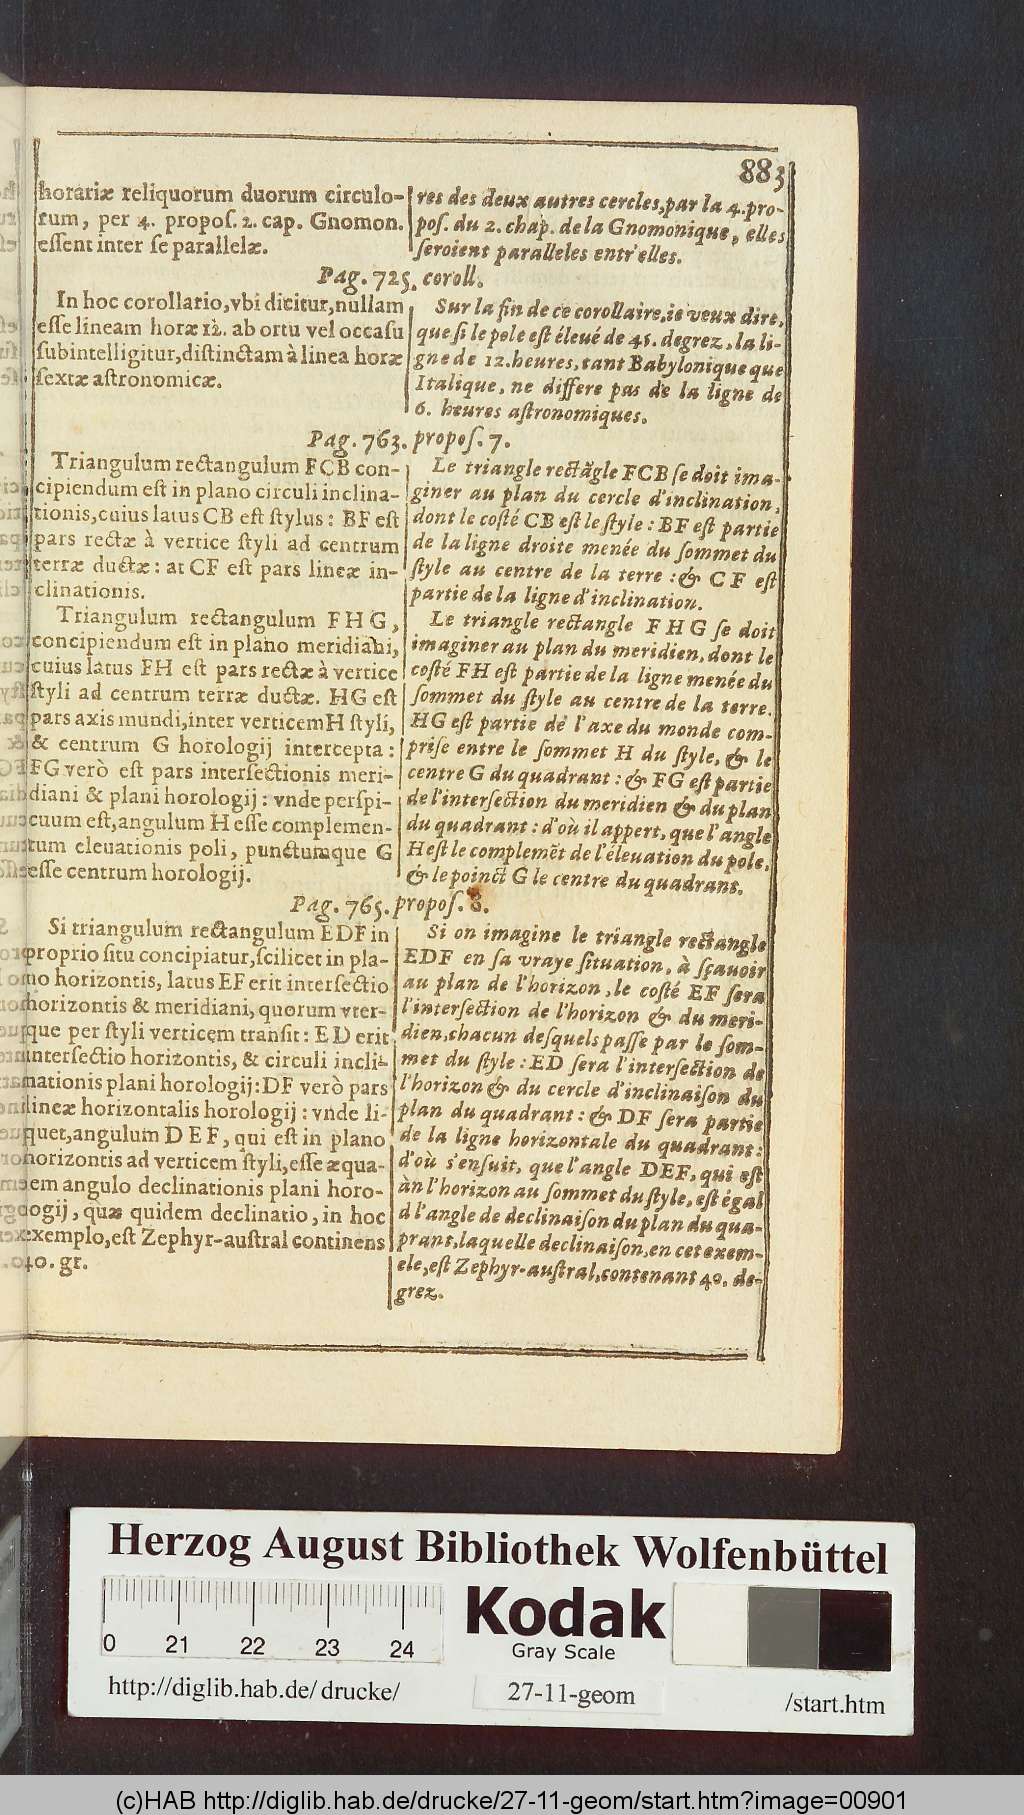 883
horariæ reliquorum duorum circulo-
rum, per 4. propos. 2. cap. Gnomon.
essent inter se parallelæ.
res des deux autres cercles, par la 4. pro-
pos. du 2. chap. de la Gnomonique, elles
seroient paralleles entr'elles.
Pag. 725. coroll.
In hoc corollario, vbi dicitur, nullam
esse lineam horæ 12. ab ortu vel occasu
subintelligitur, distinctam à linea horæ
sextæ astronomicæ.
Sur la fin de ce corollaire, ie veux dire,
que si le pole est éleué de 45. degrez, la li-
gne de 12. heures, tant Babylonique que
Italique, ne differe pas de la ligne de
6. heures astronomiques.
Pag. 763. propos. 7.
Triangulum rectangulum FCB con-
cipiendum est in plano circuli inclina-
tionis, cuius latus CB est stylus: BF est
pars rectæ à vertice styli ad centrum
terræ ductæ: at CF est pars lineæ in-
clinationis.
Triangulum rectangulum FHG,
concipiendum est in plano meridiani,
cuius latus FH est pars rectæ à vertice
styli ad centrum terræ ductæ. HG est
pars axis mundi, inter verticem H styli,
& centrum G horologij intercepta:
FG verò est pars intersectionis meri-
diani & plani horologij: vnde perspi-
cuum est, angulum H esse complemen-
tum eleuationis poli, punctumque G
esse centrum horologij.
Le triangle rectãgle FCB se doit ima-
giner au plan du cercle d'inclination,
dont le costé CB est le style: BF est partie
de la ligne droite menée du sommet du
style au centre de la terre: & CF est
partie de la ligne d'inclination.
Le triangle rectangle FHG se doit
imaginer au plan du meridien, dont le
costé FH est partie de la ligne menée du
sommet du style au centre de la terre.
HG est partie de l'axe du monde com-
prise entre le sommet H du style, & le
centre G du quadrant: & FG est partie
de l'intersection du meridien & du plan
du quadrant: d'où il appert, que l'angle
H est le complemẽt de l'éleuation du pole,
& le poinct G le centre du quadrant.
Pag. 765. propos. 8.
Si triangulum rectangulum EDF in
proprio situ concipiatur, scilicet in pla-
no horizontis, latus EF erit intersectio
horizontis & meridiani, quorum vter-
que per styli verticem transit: ED erit
intersectio horizontis, & circuli incli-
nationis plani horologij: DF verò pars
lineæ horizontalis horologij: vnde li-
quet, angulum DEF, qui est in plano
horizontis ad verticem styli, esse æqua-
em angulo declinationis plani horo-
ogij, quæ quidem declinatio, in hoc
exemplo, est Zephyr-austral continens
40. gr.
Si on imagine le triangle rectangle
EDF en sa vraye situation, à sçauoir
au plan de l'horizon, le costé EF sera
l'intersection de l'horizon & du meri-
dien, chacun desquels passe par le som-
met du style: ED sera l'intersection de
l'horizon & du cercle d'inclinaison du
plan du quadrant: & DF sera partie
de la ligne horizontale du quadrant:
d'où s'ensuit, que l'angle DEF, qui est
àn l'horizon au sommet du style, est égal
d l'angle de declinaison du plan du qua-
prant, laquelle declinaison, en cet exem-
ele, est Zephyr-austral, contenant 40. de-
grez.
Herzog August Bibliothek Wolfenbüttel
0 21 22 23 24
Kodak
Gray Scale
http://diglib.hab.de/drucke/
27-11-geom
/start.htm
(c)HAB http://diglib.hab.de/drucke/27-11-geom/start.htm?image=00901